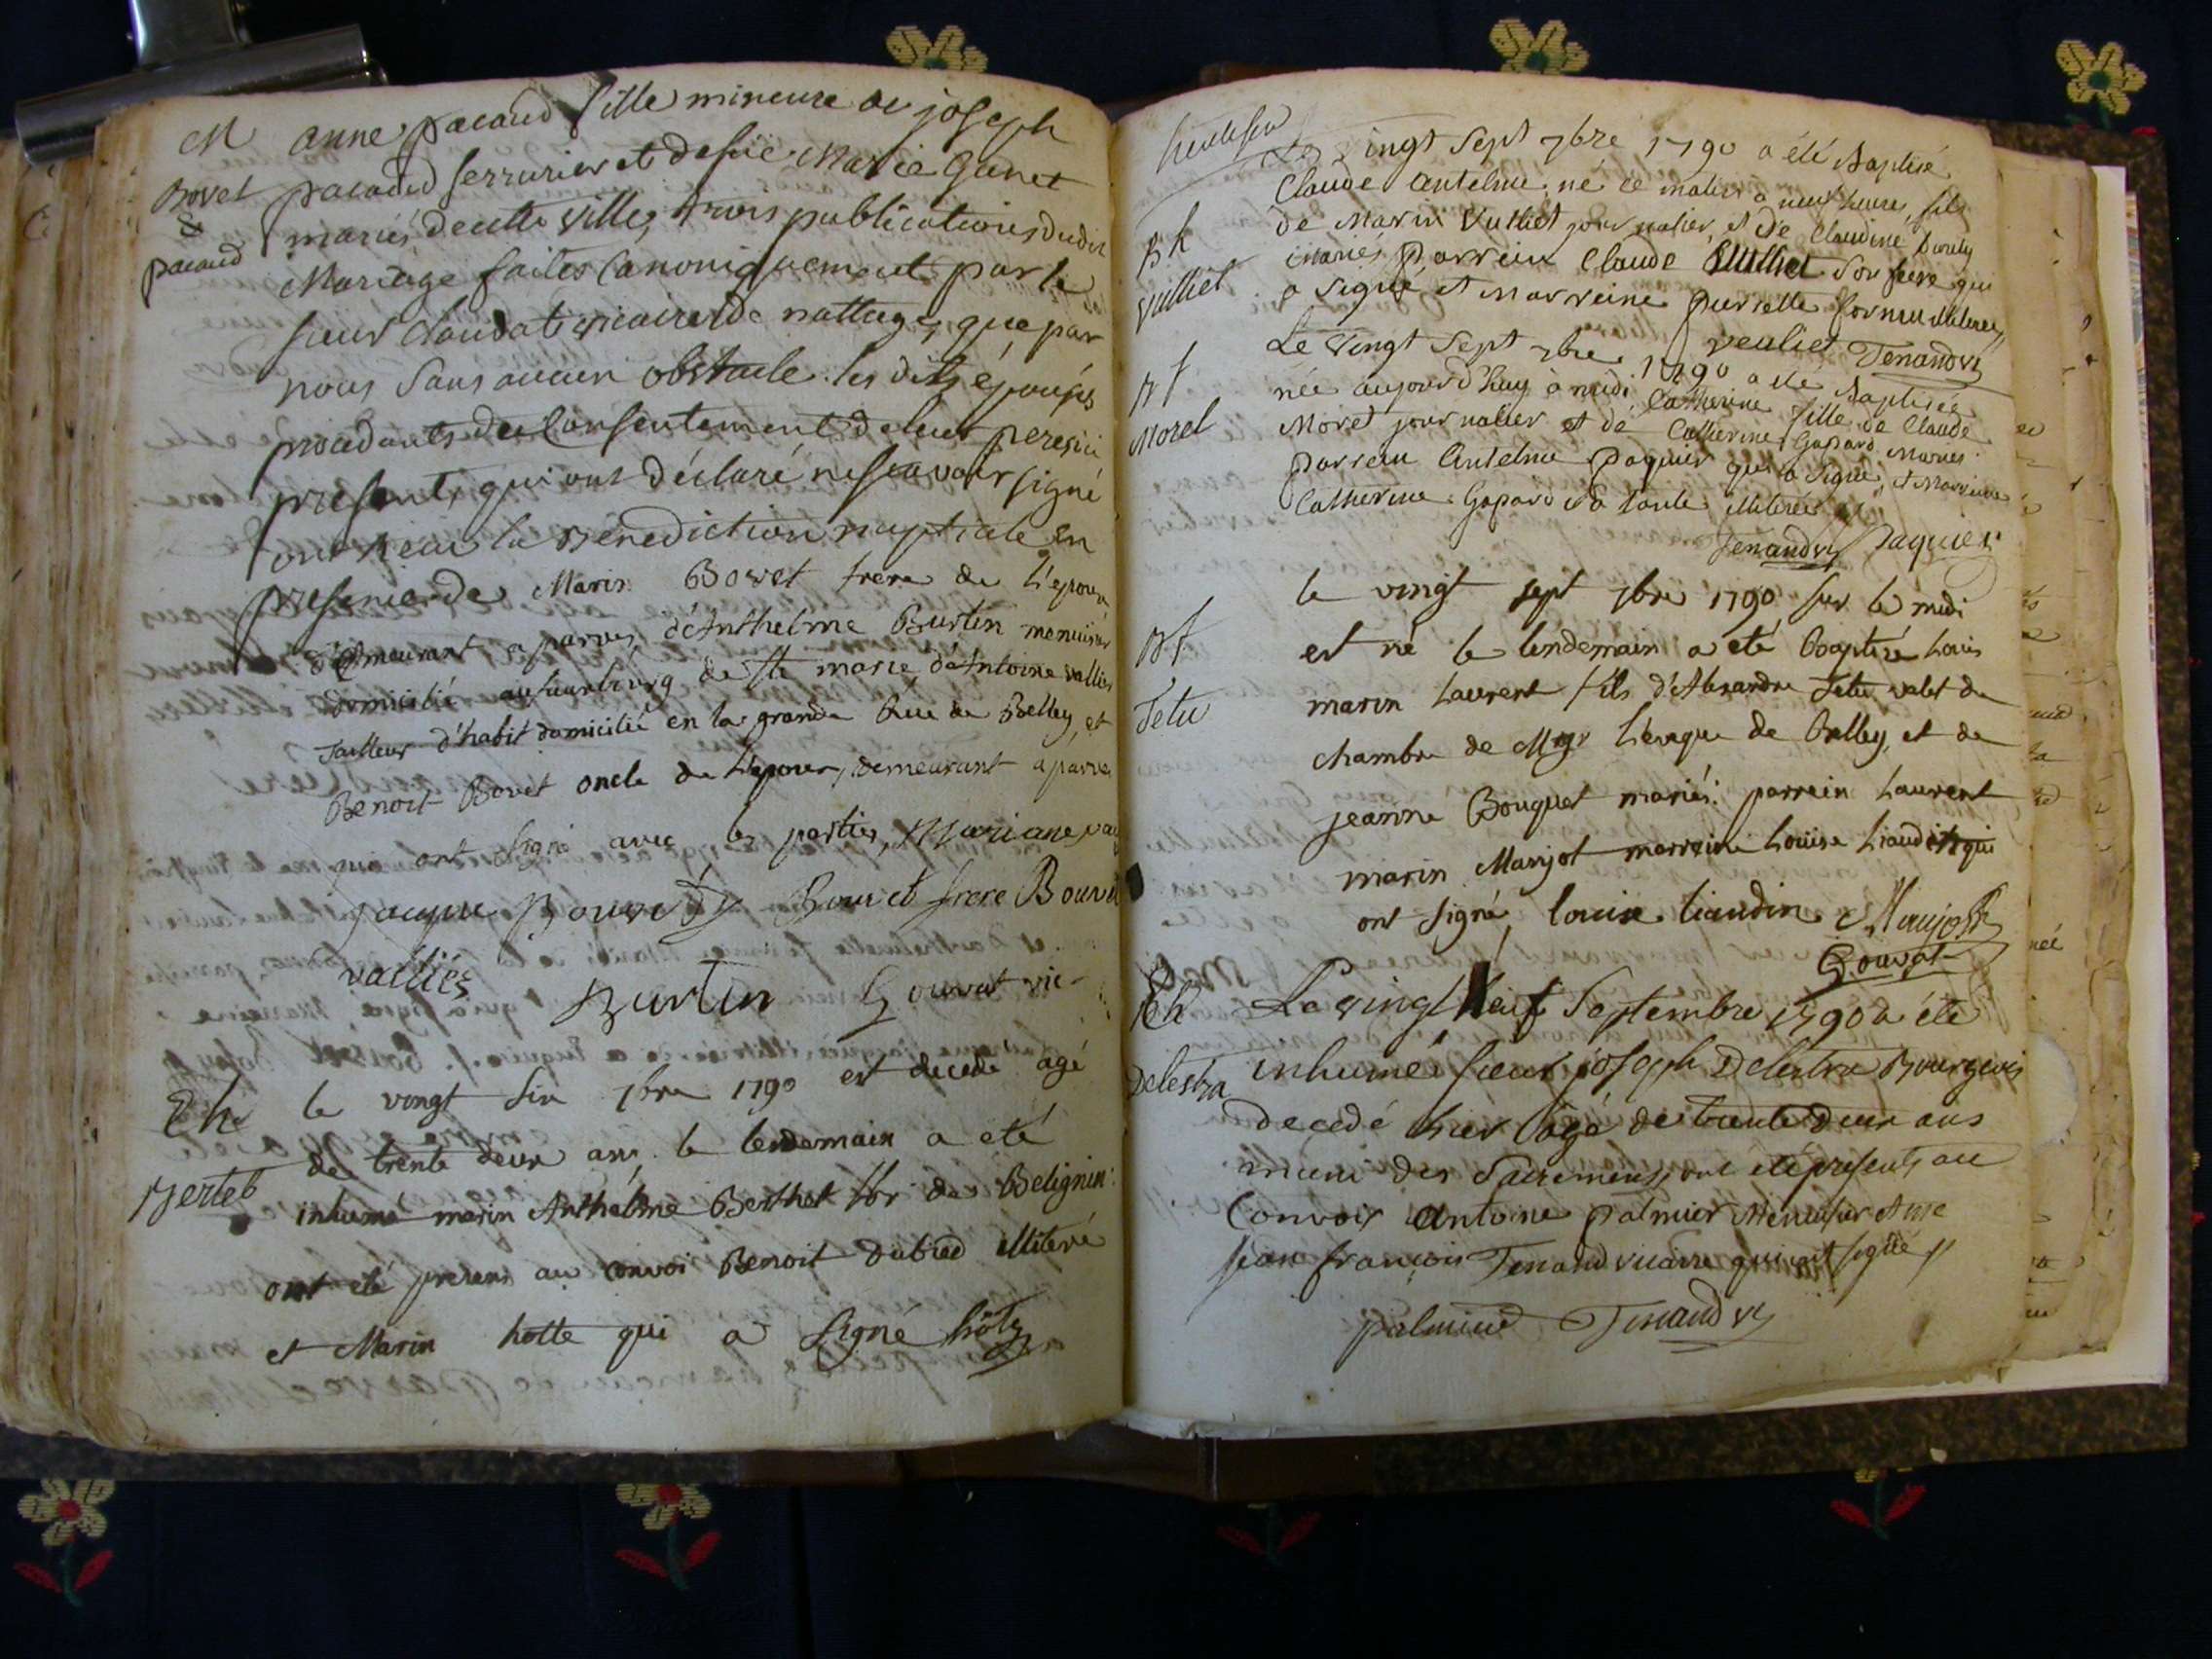 M
Bovet
&
pacaud
anne pacaud fille mineure de joseph
pacaud serrurier et defüe Marie Ganet
mariés de cette ville, trois publications dudit
Mariage faites Canoniquement par le
sieur Claudat vicaire de nattage, que par
nous sans aucun obstacle. les dits époux
procedants du Consentement de leur peres ici
presents, qui ont déclaré ne scavoir signé
ont reçu la Benediction nuptiale en
presence de Marin Bovet frere de l'epoux
demeurant a parves, d'Anthelme Burtin menuisier
domicilié au fauxbourg de ste marie, d'Antoine vallier
Tailleur d'habit domicilié en la grande Rue de Belley, et
Benoit Bovet oncle de l'epoux, demeurant a parves
qui ont signé avec les parties, Mariane
jacque Bouvet Bouvet frere Bouvet
valliés Burtin Gouvat vic
Eh
Bertet
le vingt six 7bre 1790 est decedé agé
de trente deux ans, le lendemain a été
inhumé marin Anthelme Berthet lbr de Belignin:
ont été presens au convoi Benoit Dubied illiteré
et Marin hotte qui a signé hôte
Bh
vulliet
vingt Sept 7bre 1790 a été Baptisé
Claude Antelme né ce matin à neuf heures, fils
de Marin Vulliet journalier, et de Claudine
mariés, parrein Claude Vulliet son frere qui
a signé et Marreine pierrette illiterée,
veuliet Tenand vi
Bf
Morel
Le vingt Sept 7bre 1790 a été Baptisée
née aujourd'huy à midi Catherine fille de Claude
Morel journalier et de Catherine Gapard Mariés
parrein Antelme paquier qui a signé, et Marreine
Catherine Gapard sa tante illiterée
Tenand vi Paquier
Bf
Tetu
le vingt sept 7bre 1790 sur le midi
est né le lendemain a été Baptisé Louis
marin Laurent fils d'Alexandre Tetu valet de
chambre de Mgr L'eveque de Belley, et de
jeanne Bouquet mariés: parrein Laurent
marin Manjot marreine Louise Liaudin qui
ont signé, louise liaudin Maujot
Gouvat
Eh
Delestra
Le vingt Neuf Septembre 1790 a été
inhumé sieur joseph Delestra Bourgeois
decedé hier agé de trente deux ans
muni des Sacremens, ont été presents au
Convoi Antoine palmier Menuisier et me
jean françois Tenand vicaire qui ont signé
palmier Tenand vi